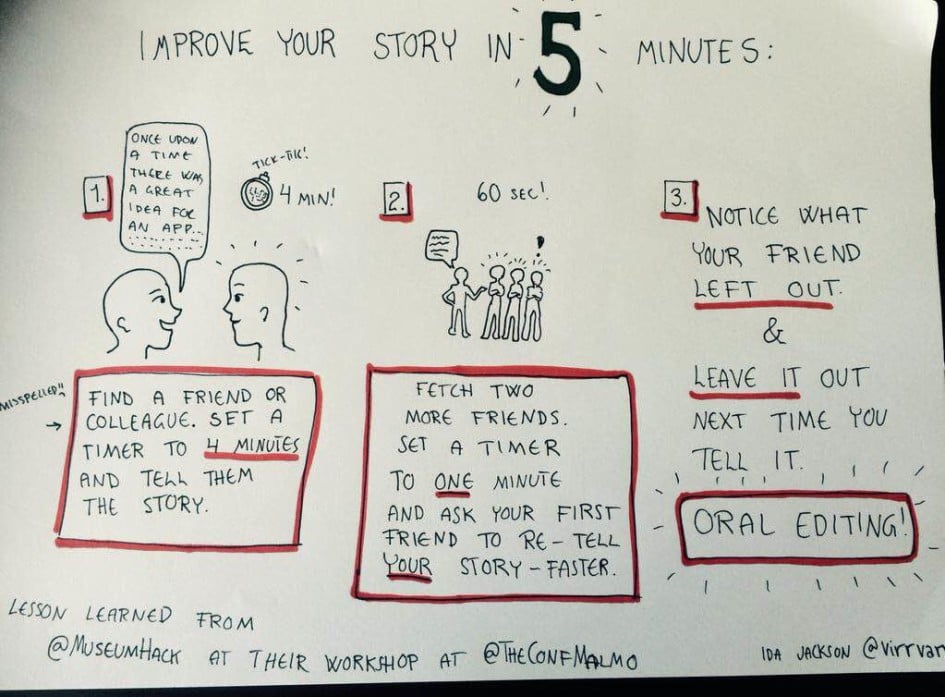 IMPROVE YOUR STORY IN 5 MINUTES:
1.
ONCE UPON
A TIME
THERE WAS
A GREAT
IDEA FOR
AN APP...
TICK-TIK!
4 MIN!
MISSPELLED!!
FIND A FRIEND OR
COLLEAGUE. SET A
TIMER TO 4 MINUTES
AND TELL THEM
THE STORY.
2.
60 SEC!
FETCH TWO
MORE FRIENDS.
SET A TIMER
TO ONE MINUTE
AND ASK YOUR FIRST
FRIEND TO RE-TELL
YOUR STORY-FASTER.
3.
NOTICE WHAT
YOUR FRIEND
LEFT OUT.
&
LEAVE IT OUT
NEXT TIME YOU
TELL IT.
ORAL EDITING!
LESSON LEARNED FROM
@MUSEUMHACK AT THEIR WORKSHOP AT @THECONFMALMO
IDA JACKSON @Virrvar